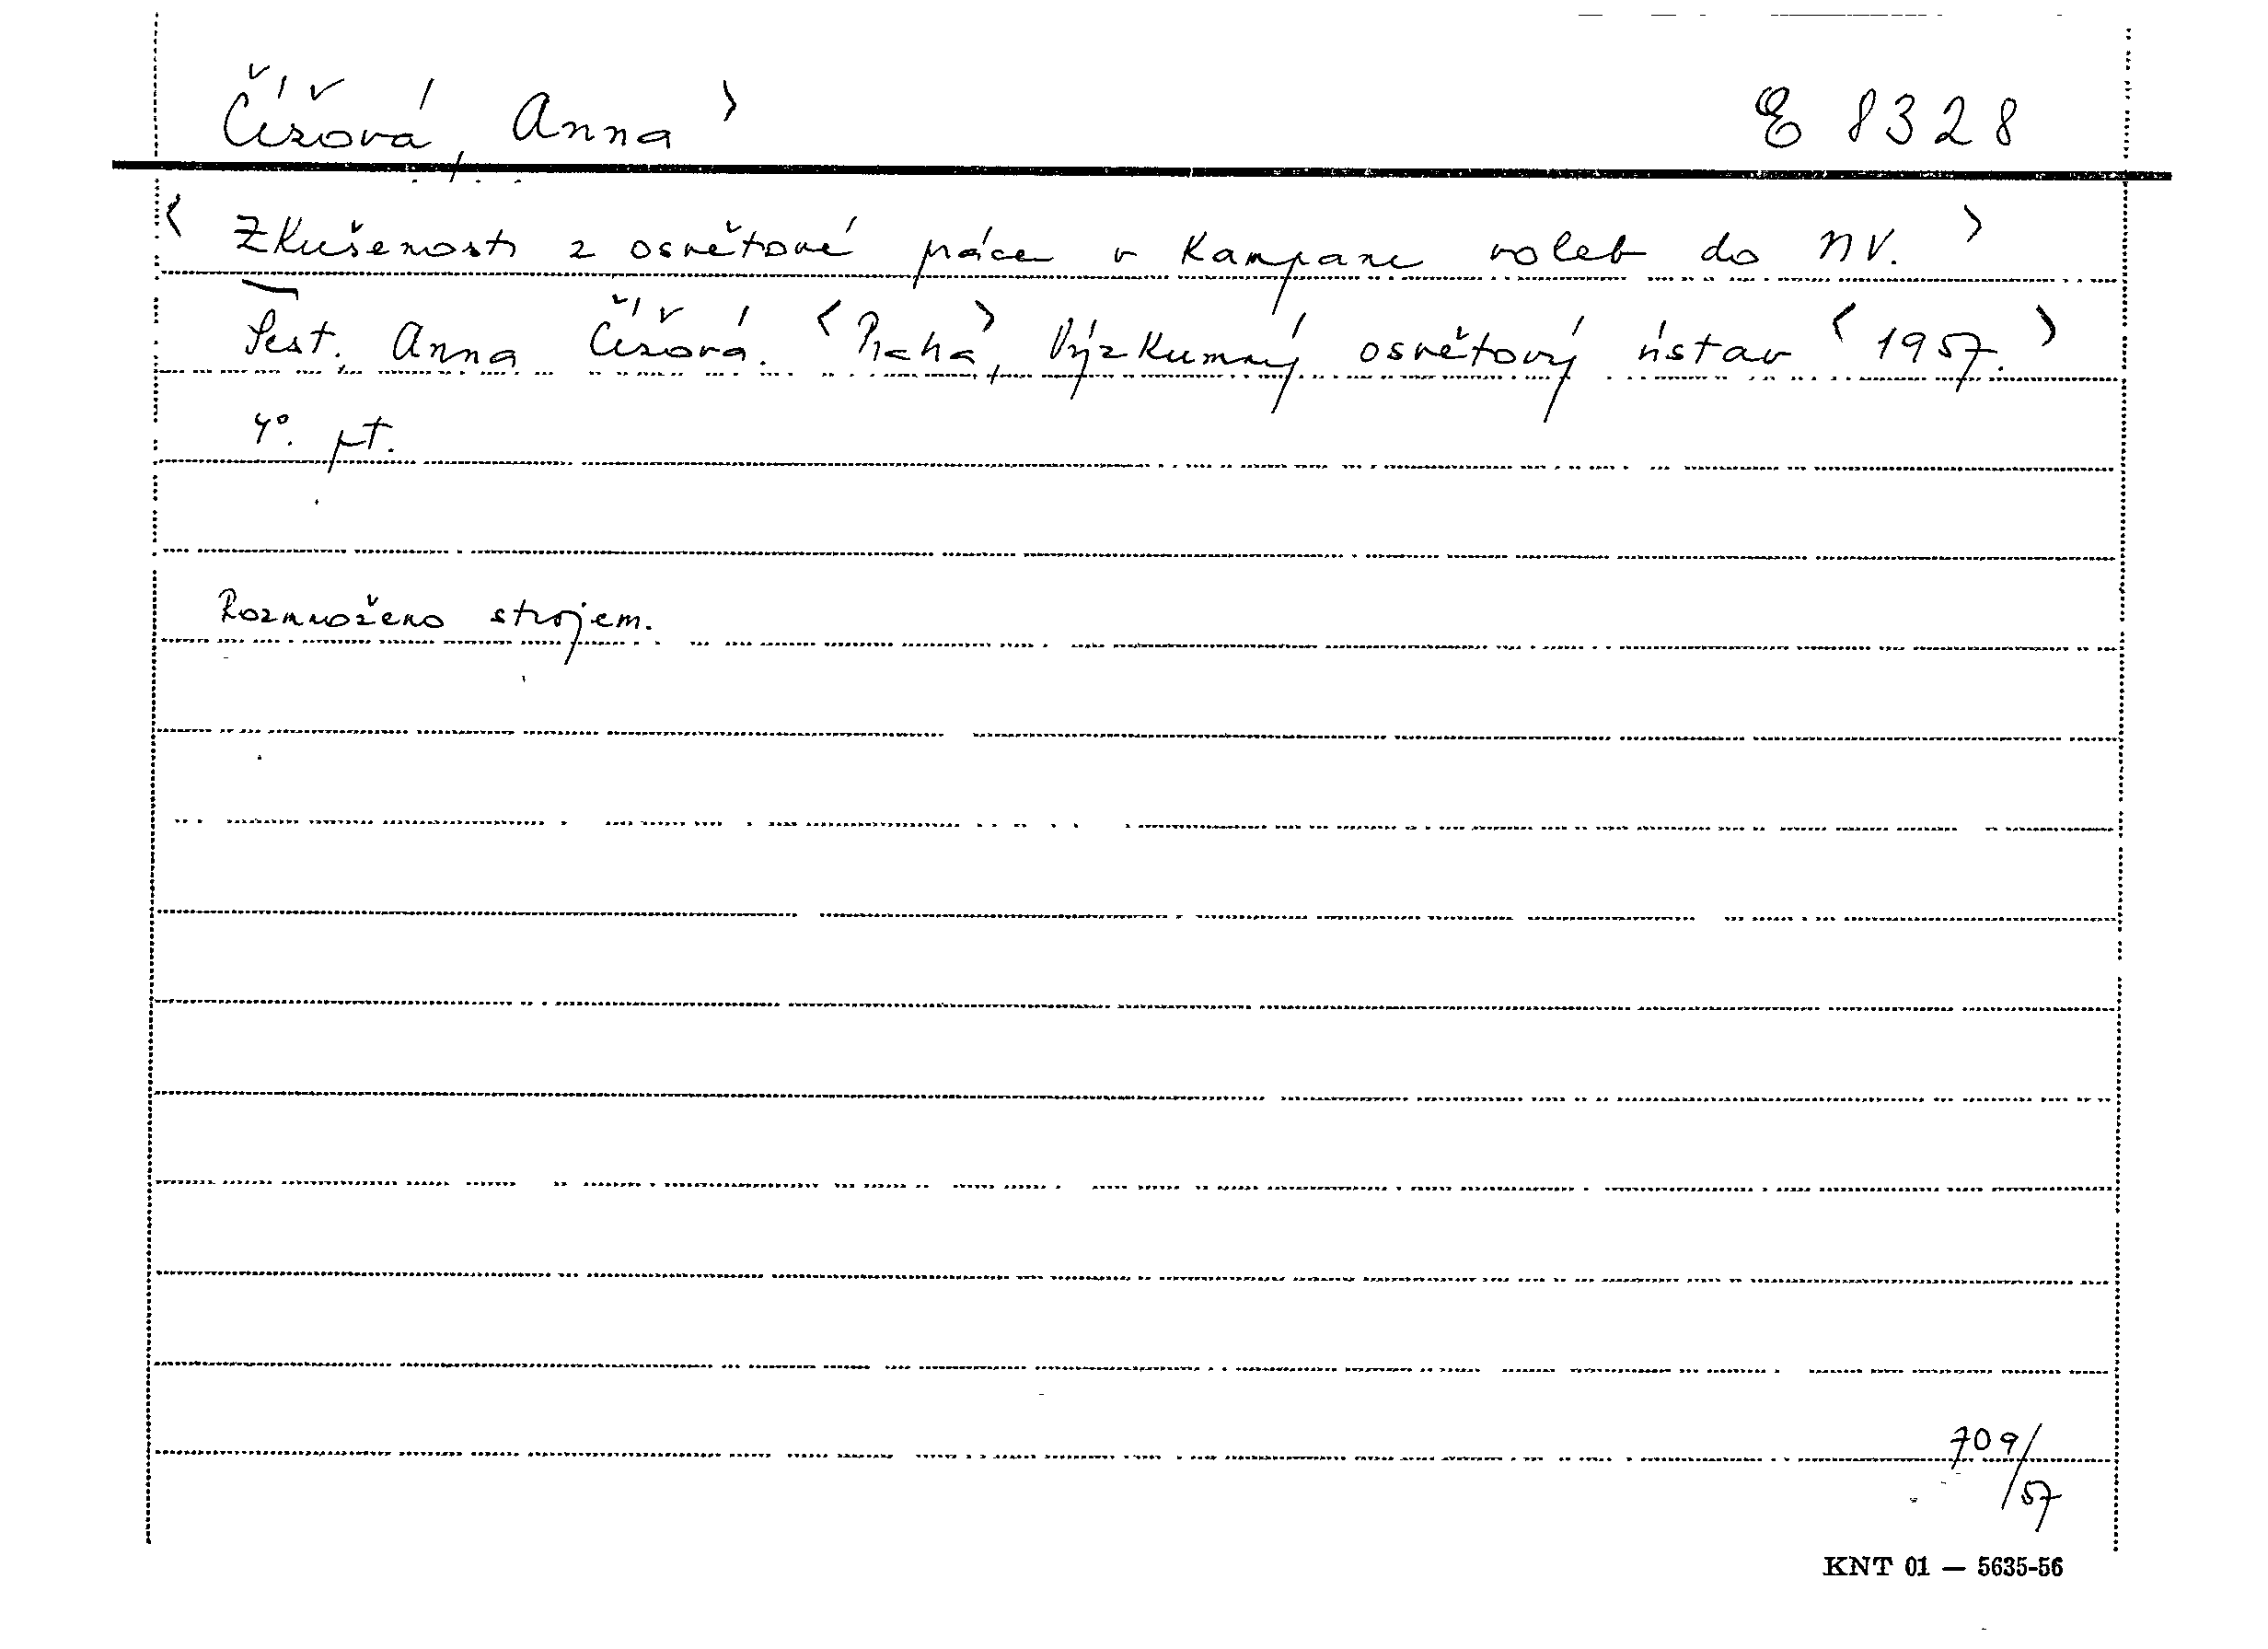 Čížová, Anna > E 8328
< Zkušenosti z osvětové práce v kampani voleb do NV. >
Sest. Anna Čížová. < Praha > , Výzkumný osvětový ústav < 1957. >
4°. pt.
Rozmnoženo strojem.
709/57
KNT 01 — 5635-56